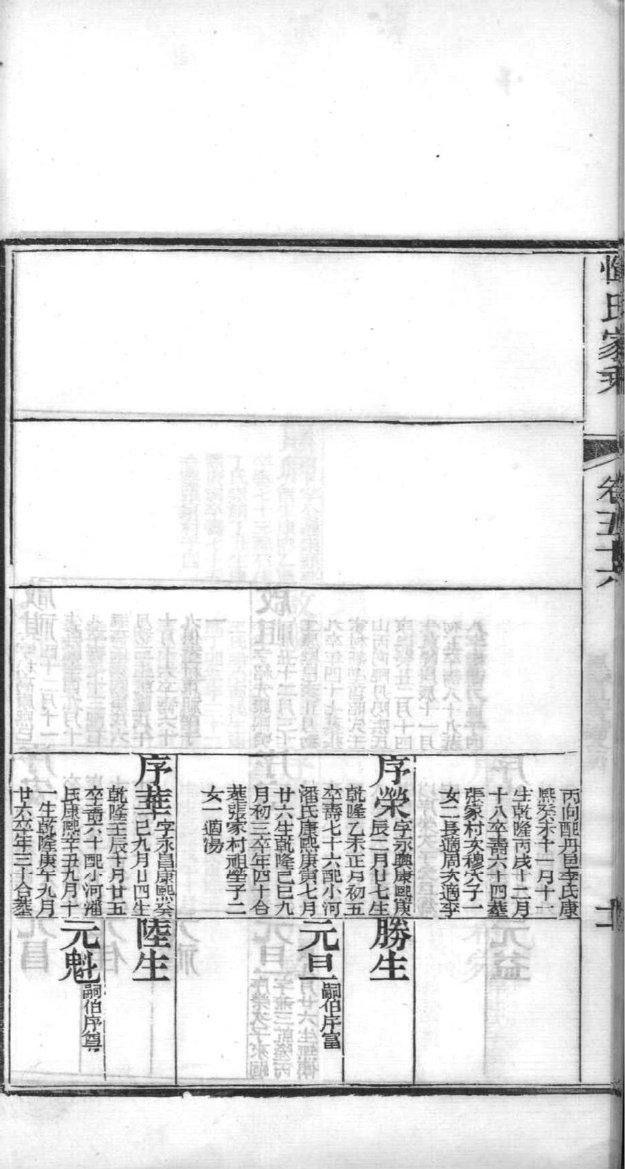 惲氏家乘
卷五十八
丙向配丹邑李氏康
熙癸未十一月十一
生乾隆丙戌十二月
十八卒壽六十四葬
張家村次穆穴子一
女二長適周次適李
序榮
字永興康熙庚
辰二月廿七生
乾隆乙未正月初五
卒壽七十六配小河
潘氏康熙庚寅七月
廿六生乾隆己巳九
月初三卒年四十合
葬張家村祖塋子二
女一適湯
序華
字永昌康熙癸
巳九月廿四生
乾隆壬辰十月廿五
卒壽六十配小河潘
氏康熙辛丑九月十
一生乾隆庚午九月
廿六卒年三十合葬
勝生
元旦
嗣伯序富
陸生
元魁
嗣伯序尊